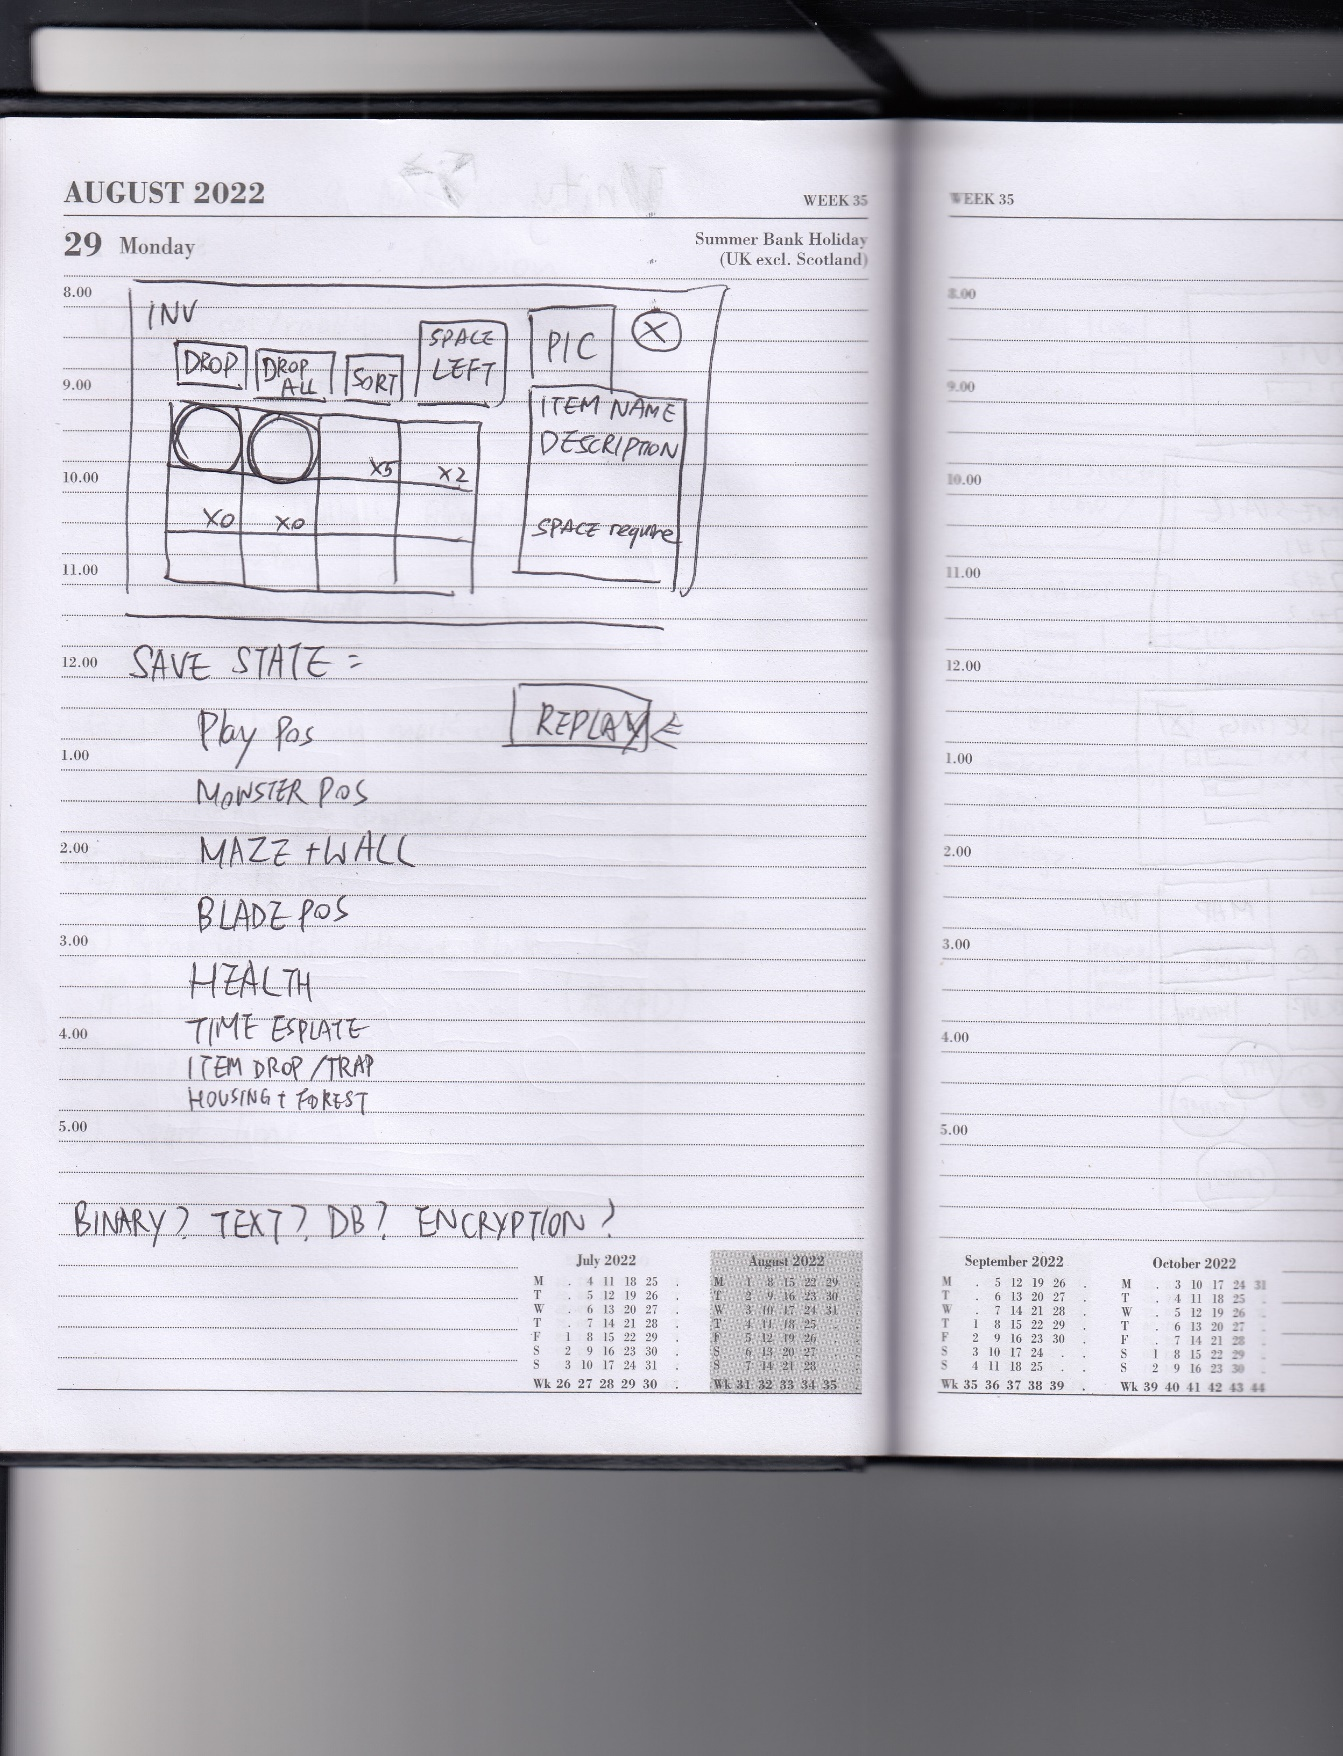 AUGUST 2022
WEEK 35
29 Monday
Summer Bank Holiday
(UK excl. Scotland)
8.00
INV
DROP
DROP
ALL
SORT
SPACE
LEFT
PIC
X
9.00
ITEM NAME
DESCRIPTION
10.00
X5
X2
X0
X0
SPACE require
11.00
12.00
SAVE STATE =
Play Pos
REPLAY
1.00
MONSTER POS
2.00
MAZE + WALL
BLADE POS
3.00
HEALTH
4.00
TIME ESPLATE
ITEM DROP / TRAP
HOUSING + FOREST
5.00
BINARY? TEXT? DB? ENCRYPTION?
July 2022
M . 4 11 18 25 .
T . 5 12 19 26 .
W . 6 13 20 27 .
T . 7 14 21 28 .
F 1 8 15 22 29 .
S 2 9 16 23 30 .
S 3 10 17 24 31 .
Wk 26 27 28 29 30 .
August 2022
M 1 8 15 22 29 .
T 2 9 16 23 30 .
W 3 10 17 24 31 .
T 4 11 18 25 . .
F 5 12 19 26 . .
S 6 13 20 27 . .
S 7 14 21 28 . .
Wk 31 32 33 34 35 .
WEEK 35
8.00
9.00
10.00
11.00
12.00
1.00
2.00
3.00
4.00
5.00
September 2022
M . 5 12 19 26 .
T . 6 13 20 27 .
W . 7 14 21 28 .
T 1 8 15 22 29 .
F 2 9 16 23 30 .
S 3 10 17 24 . .
S 4 11 18 25 . .
Wk 35 36 37 38 39 .
October 2022
M . 3 10 17 24 31
T . 4 11 18 25 .
W . 5 12 19 26 .
T . 6 13 20 27 .
F . 7 14 21 28 .
S 1 8 15 22 29 .
S 2 9 16 23 30 .
Wk 39 40 41 42 43 44